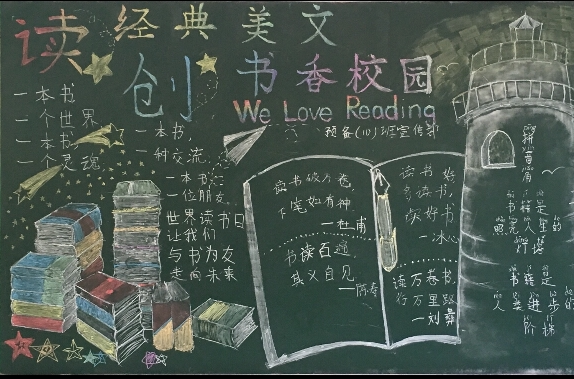 读经典美文
创书香校园
We Love Reading
预备(10)班宣传部
一本书
一个世界
一本书
一个灵魂
一本书,
一种交流,
一本书
一位朋友
世界读书日
让我们
与书为友
走向未来
读书破万卷,
下笔如有神
—杜甫
书读百遍
其义自见
—陈寿
读书好
多读书
读好书
—冰心
读万卷书,
行万里路
—刘彝
书籍是
人类进步的
阶梯